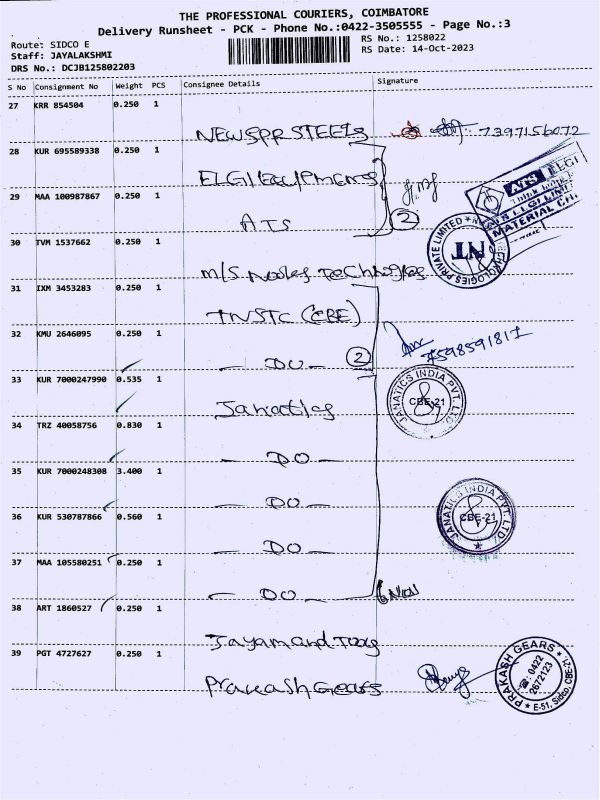 THE PROFESSIONAL COURIERS, COIMBATORE
Delivery Runsheet - PCK - Phone No.:0422-3505555 - Page No.:3
Route: SIDCO E
RS No.: 1258022
Staff: JAYALAKSHMI
RS Date: 14-Oct-2023
DRS No.: DCJB125802203
S No Consignment No Weight PCS Consignee Details Signature
27 KRR 854504 0.250 1
NEWSPR STEELS 7397156072
28 KUR 695589338 0.250 1
ELGI Equipments
29 MAA 100987867 0.250 1
ATS 2
ATS ELGI
MATERIAL
30 TVM 1537662 0.250 1
M/S. Technologies
NT
TECHNOLOGIES PRIVATE LIMITED
31 IXM 3453283 0.250 1
TNSTC (CBE)
32 KMU 2646095 0.250 1
7598591817
— DO — 2
33 KUR 7000247990 0.535 1
Janatics
JANATICS INDIA PVT. LTD.
CBE-21
34 TRZ 40058756 0.830 1
— DO —
35 KUR 7000248308 3.400 1
— DO —
36 KUR 530787866 0.560 1
JANATICS INDIA PVT. LTD.
CBE-21
— DO —
37 MAA 105580251 0.250 1
— DO — 6 Nos
38 ART 1860527 0.250 1
Jayam and Tools
39 PGT 4727627 0.250 1
Prakash Gears
PRAKASH GEARS
☎: 0422
2672123
E-51, Sidco, CBE-21.